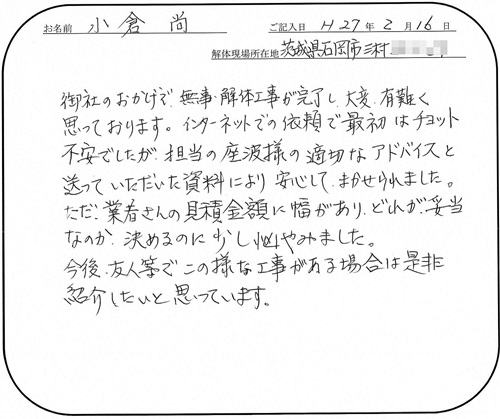 お名前 小倉 尚 ご記入日 H27年2月16日
解体現場所在地 茨城県石岡市三村
御社のおかげで、無事、解体工事が完了し、大変、有難く
思っております。インターネットでの依頼で最初はチョット
不安でしたが、担当の座波様の適切なアドバイスと
送っていただいた資料により安心して、まかせられました。
ただ、業者さんの見積金額に幅があり、どれが、妥当
なのか、決めるのに少し悩やみました。
今後、友人等でこの様な工事がある場合は是非
紹介したいと思っています。